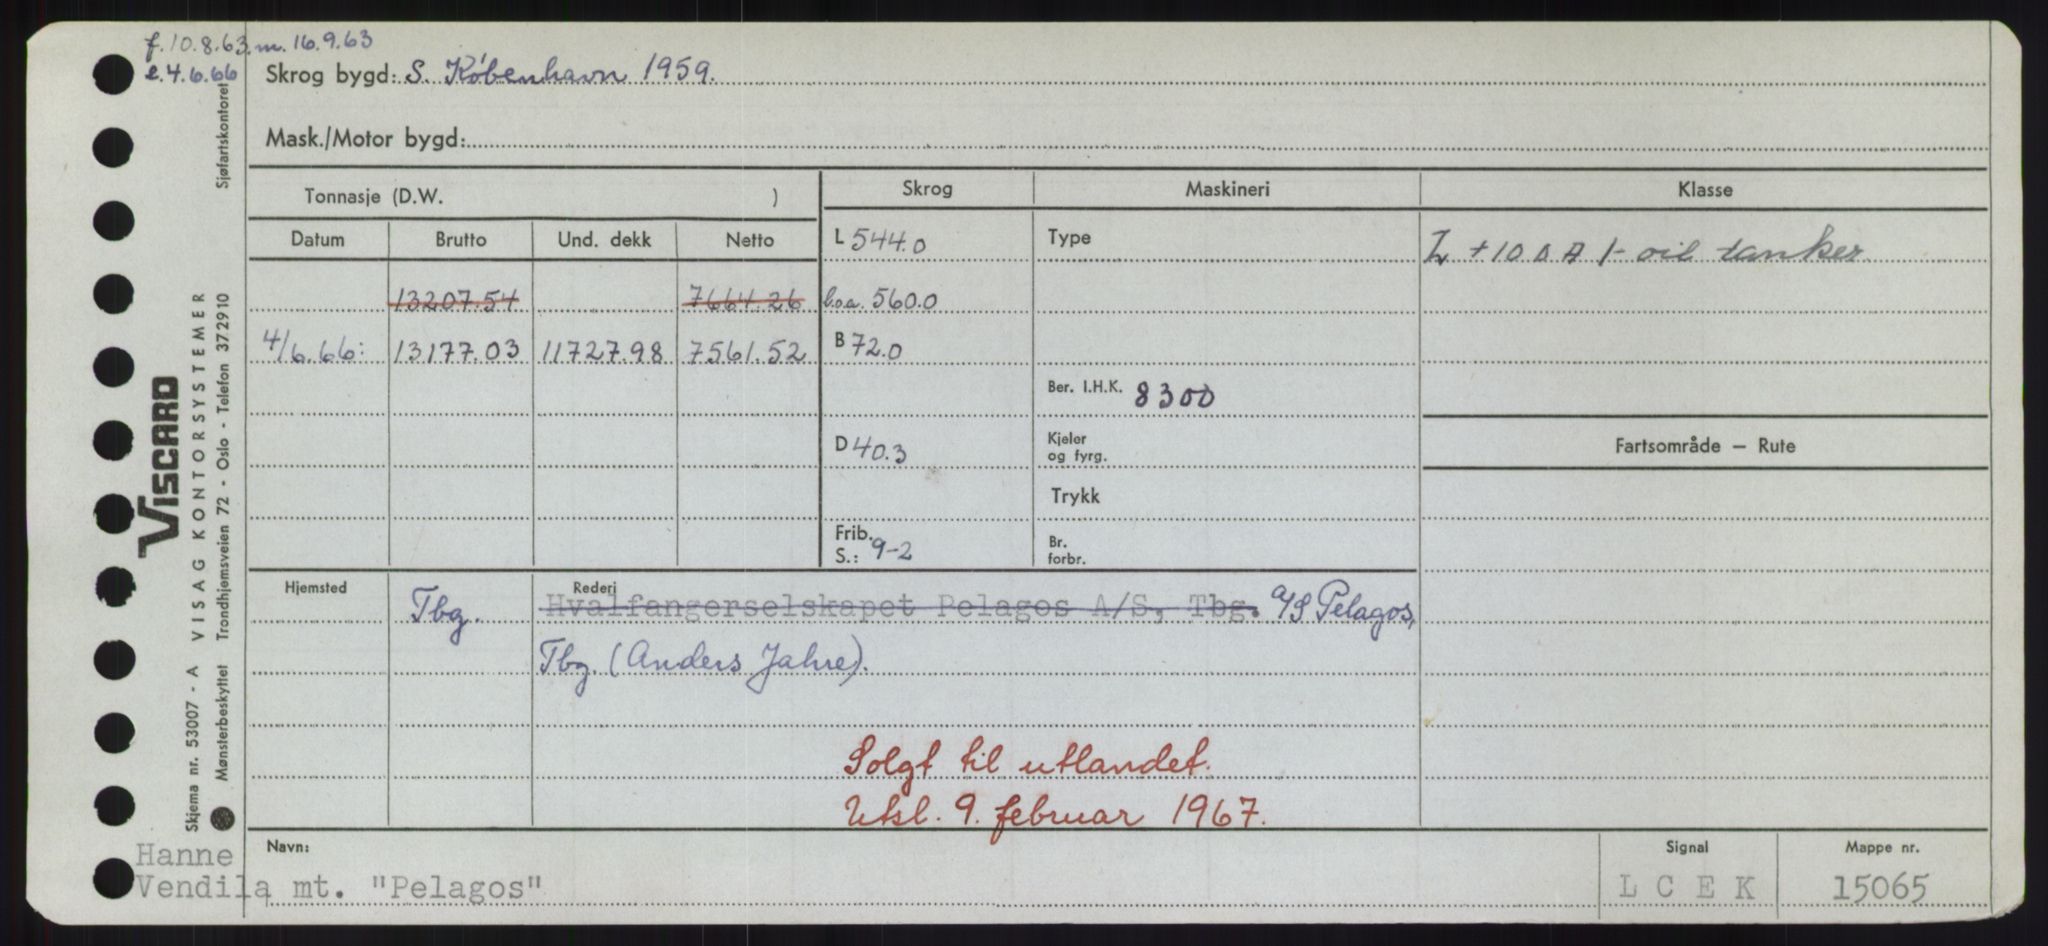 f.10.8.63. m. 16.9.63
e.4.6.66
Skrog bygd: S. København 1959.
Mask./Motor bygd:
Tonnasje (D.W. )
Skrog Maskineri Klasse
Datum Brutto Und. dekk Netto
L 544.0 Type + 10 A 1- oil tanker
13207.54 7664.26 l.o.a. 560.0
4/6.66: 13177.03 11727.98 7561.52 B 72.0
Ber. I.H.K. 8300
D 40.3 Kjeler og fyrg. Fartsområde — Rute
Trykk
Frib. S.: 9-2 Br. forbr.
Hjemsted Tbg. Rederi Hvalfangerselskapet Pelagos A/S, Tbg. A/S Pelagos,
Tbg. (Anders Jahre).
Solgt til utlandet.
Utsl. 9. februar 1967.
Navn: Signal Mappe nr.
Hanne
Vendila mt. "Pelagos" L C E K 15065
VISCARD
Skjema nr. 53007 - A VISAG KONTORSYSTEMER
Mønsterbeskyttet Trondhjemsveien 72 - Oslo - Telefon 372910 Sjøfartskontoret